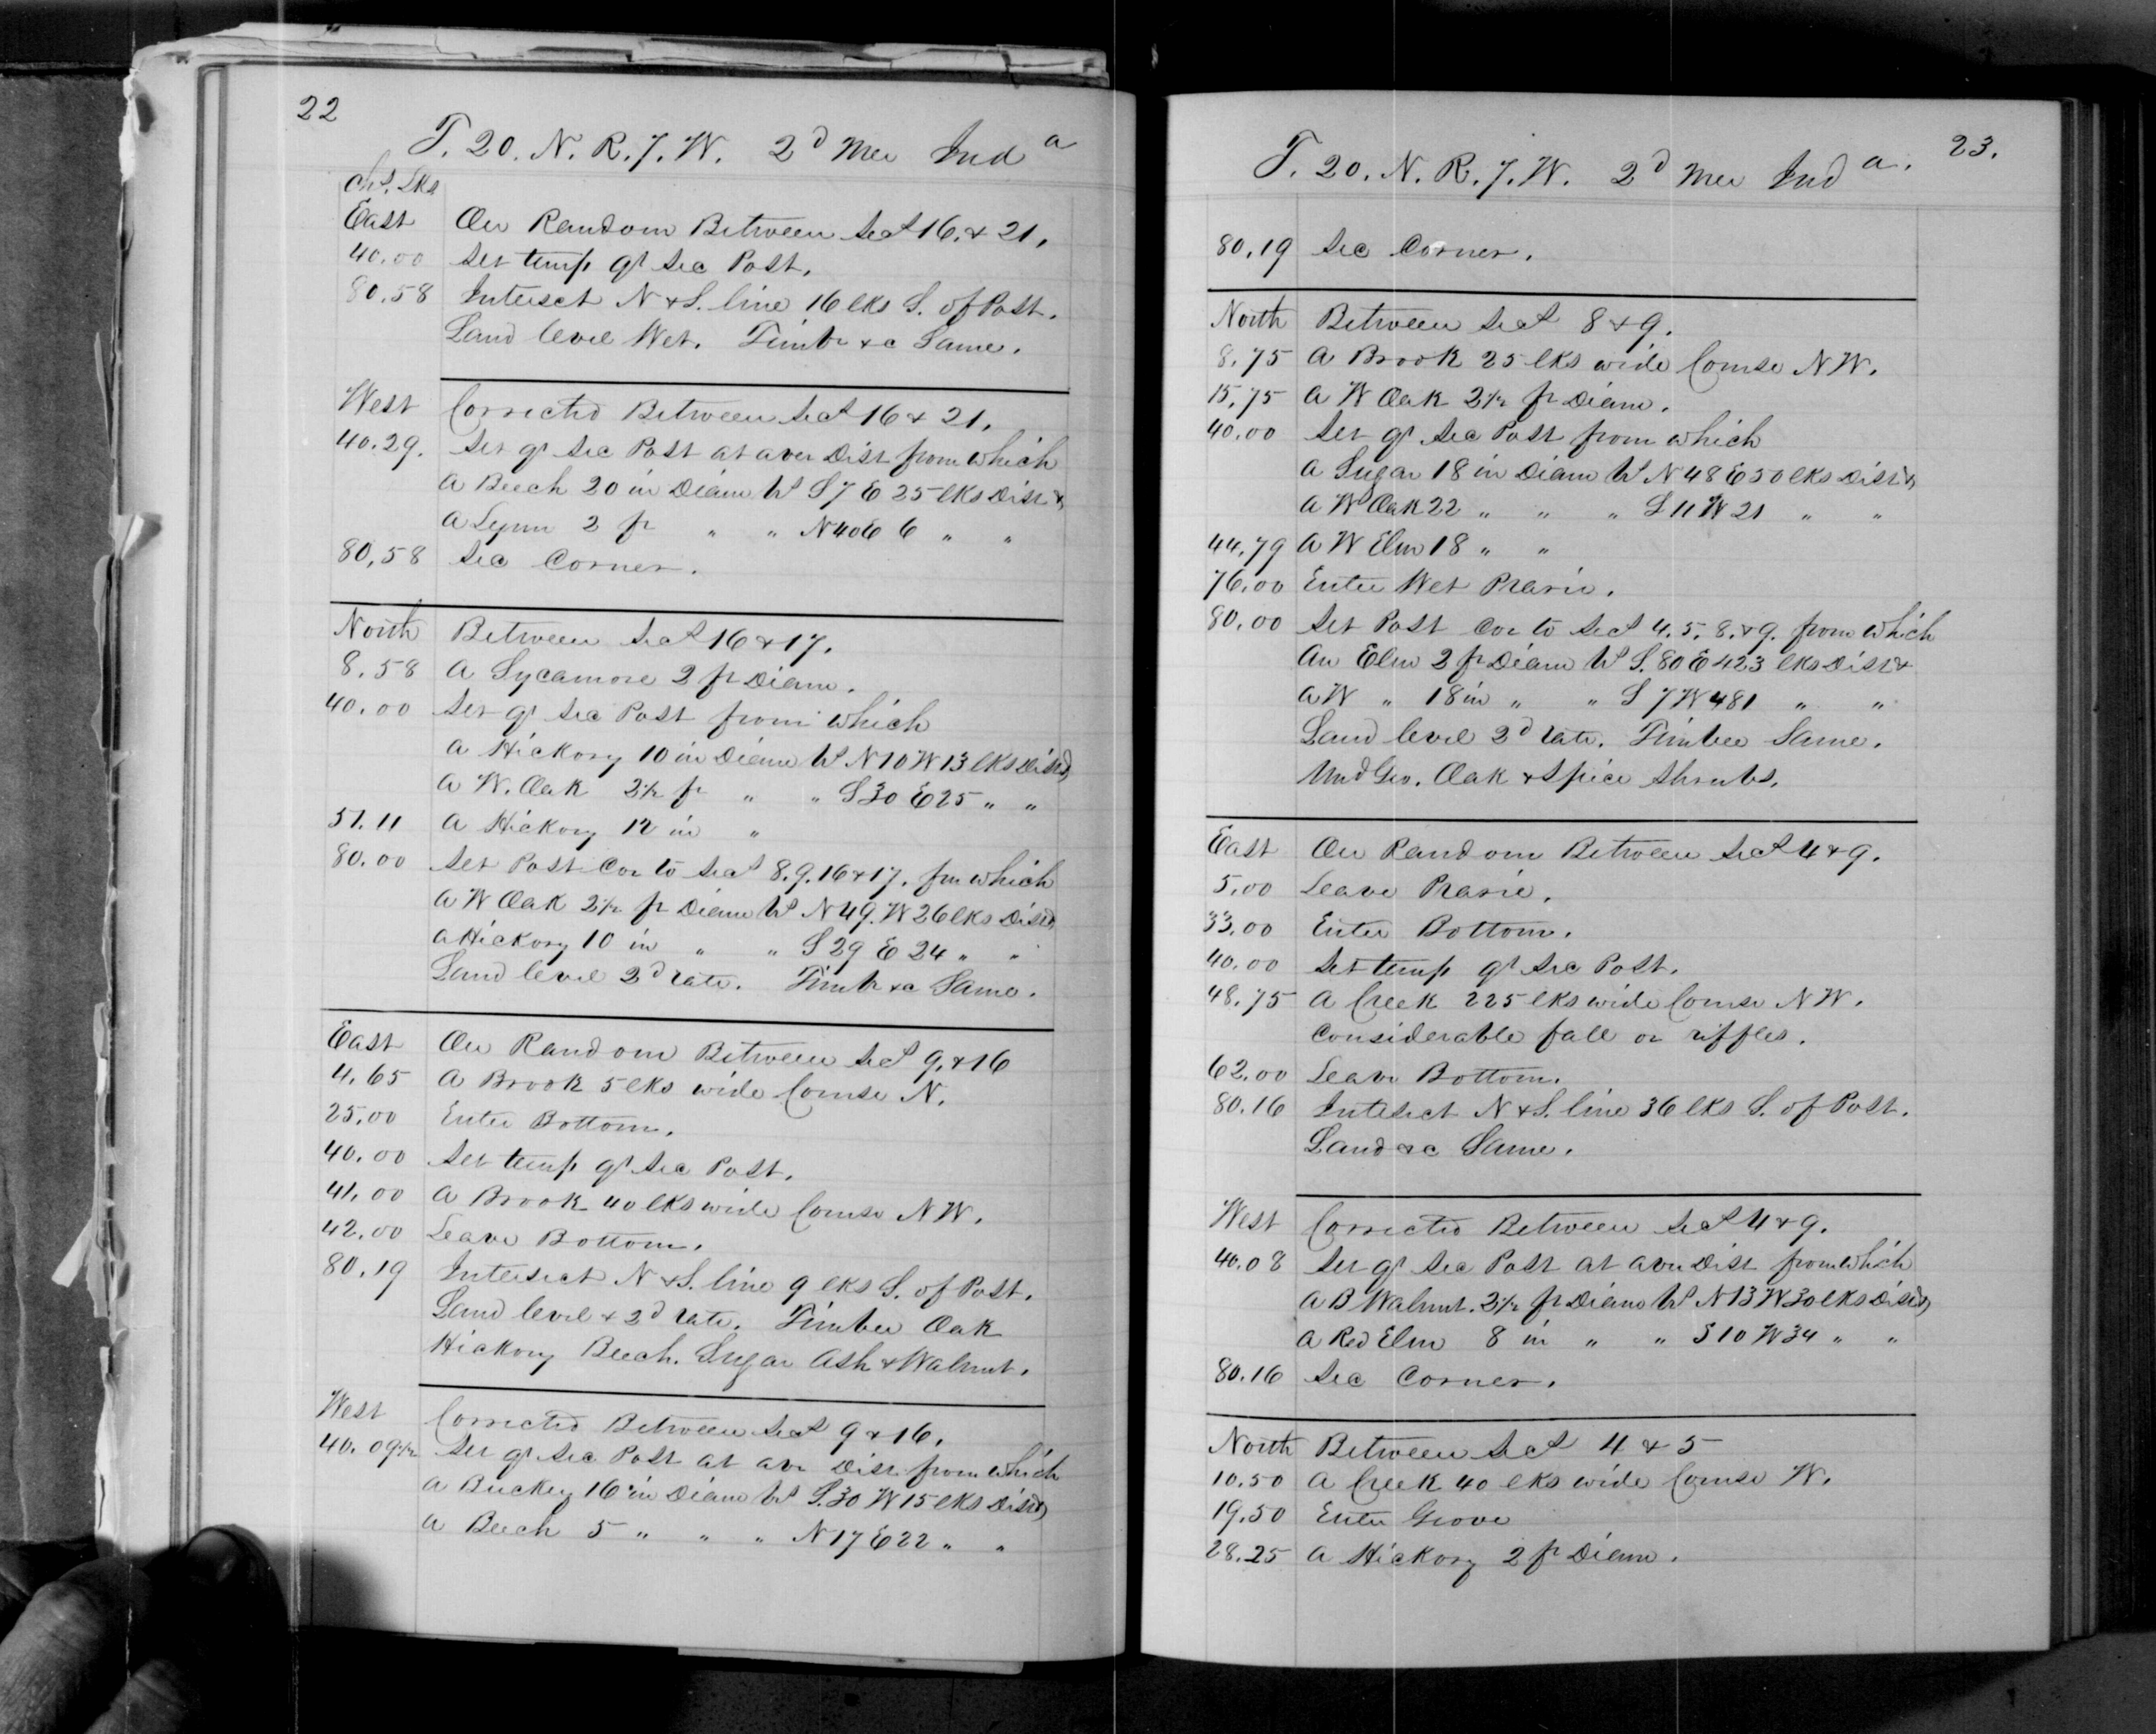 22
T. 20. N. R. 7. W. 2d Mer Inda
Chs. Lks
East On Random Between Secs 16. & 21.
40.00 Set temp qr Sec Post.
80.58 Intersct N & S. line 16 lks S. of Post.
Land level Wet. Timbr &c Same.
West Corrected Between Secs 16 & 21.
40.29. Set qr Sec Post at aver Dist from which
A Beech 20 in Diam brs S 7 E 25 lks Dist &
A Lynn 2 ft " " N 40 E 6 " "
80.58 Sec Corner.
North Between Secs 16 & 17.
8.58 A Sycamore 2 ft Diam.
40.00 Set qr Sec Post from which
A Hickory 10 in Diam brs N 10 W 13 lks Dist &
A W. Oak 2½ ft " " S 30 E 25 " "
51.11 A Hickory 12 in "
80.00 Set Post Cor to Secs 8. 9. 16 & 17. fm which
A W Oak 2½ ft Diam brs N 49. W 26 lks Dist &
A Hickory 10 in " " S 29 E 24 " "
Land level 2d rate. Timbr &c Same.
East On Random Between Secs 9. & 16
4.65 A Brook 5 lks wide Course N.
25.00 Enter Bottom.
40.00 Set temp qr Sec Post.
41.00 A Brook 40 lks wide Course N W.
42.00 Leave Bottom.
80.19 Intersect N & S. line 9 lks S. of Post.
Land level & 2d rate. Timber Oak
Hickory Beech. Sugar Ash & Walnut.
West Corrected Between Secs 9 & 16.
40.09½ Set qr Sec Post at avr Dist from which
A Buckey 16 in Diam brs S. 30 W 15 lks Dist &
A Beech 5 " " " N 17 E 22 " "
23.
T. 20. N. R. 7. W. 2d Mer Inda.
80.19 Sec Corner.
North Between Secs 8 & 9.
8.75 A Brook 25 lks wide Course N W.
15.75 A W Oak 2½ ft Diam.
40.00 Set qr Sec Post from which
A Sugar 18 in Diam brs N 48 E 50 lks Dist &
A W Oak 22 " " " S 11 W 21 " "
44.79 A W Elm 18 " "
76.00 Enter Wet Prarie.
80.00 Set Post Cor to Secs 4. 5. 8. & 9. from which
An Elm 2 ft Diam brs S. 80 E 423 lks Dist &
A W " 18 in " " S 7 W 481 " "
Land level 2d rate. Timber Same.
Und Gro. Oak & Spice Shrubs.
East On Random Between Secs 4 & 9.
5.00 Leave Prarie.
33.00 Enter Bottom.
40.00 Set temp qr Sec Post.
48.75 A Creek 225 lks wide Course N W.
Considerable fall or riffles.
62.00 Leave Bottom.
80.16 Intersect N & S. line 36 lks S. of Post.
Land &c Same.
West Corrected Between Secs 4 & 9.
40.08 Set qr Sec Post at aver Dist from which
A B Walnut. 2½ ft Diam brs N 13 W 30 lks Dist &
A Red Elm 8 in " " S 10 W 34 " "
80.16 Sec Corner.
North Between Secs 4 & 5
10.50 A Creek 40 lks wide Course W.
19.50 Enter Grove
28.25 A Hickory 2 ft Diam.